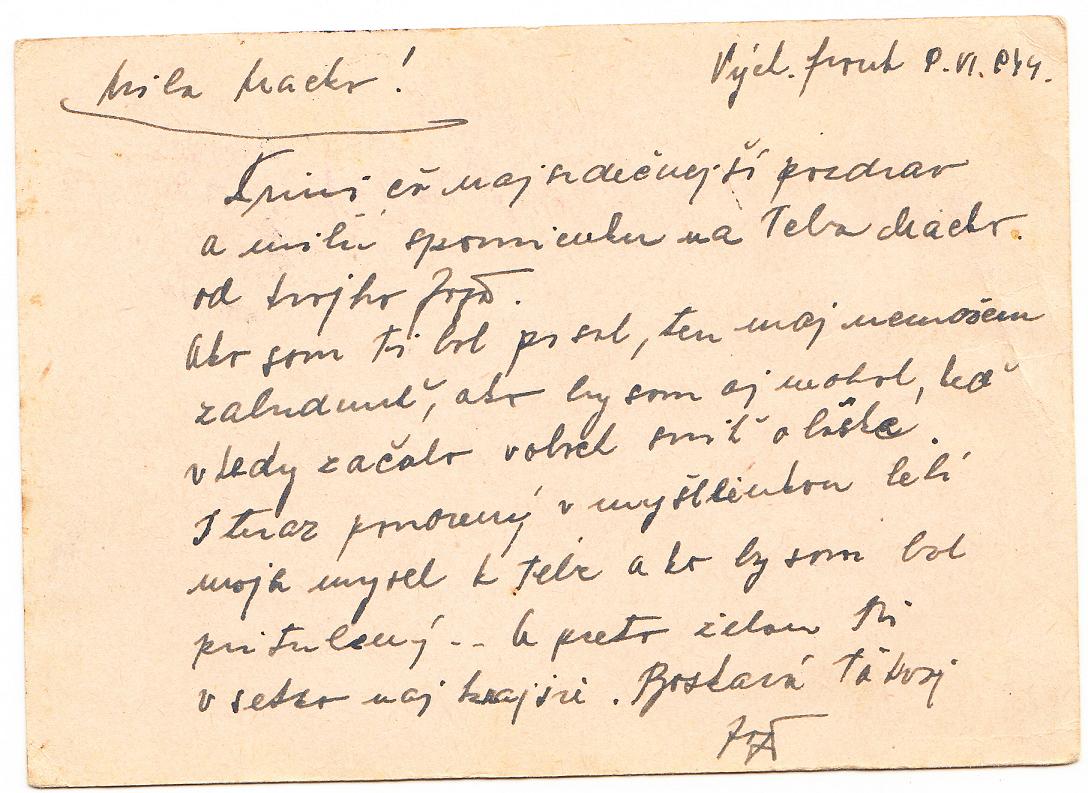 Milá Macko! Vých. front 8.VI.944.
Príjmi čo najsrdečnejší pozdrav
a milú spomienku na Teba Macko.
od tvojho Jozo.
Ako som ti bol písal, ten maj nemožem
zabudnuť, ako by som aj mohol, keď
vtedy začalo v oboch sniť o láske.
I teraz ponorený v myšlienkou letí
moja mysel k tebe ako by som bol
pritulený -- A preto želam Ti
v setko naj krajšie. Boskavá Ťa tvoj